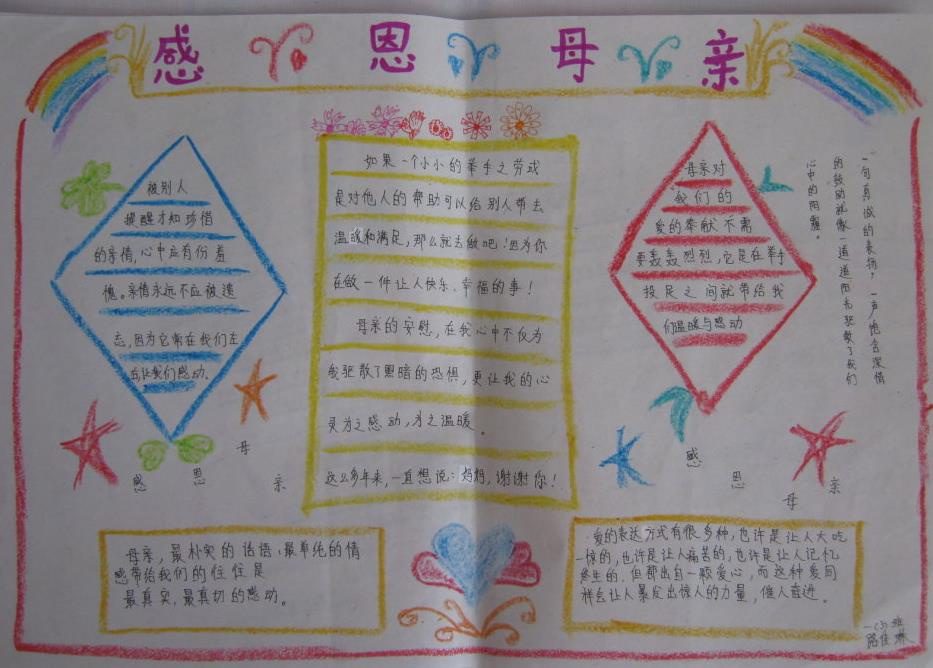 感恩母亲
被别人
提醒才知珍惜
的亲情,心中应有份羞
愧。亲情永远不应被遗
忘,因为它常在我们左
右,让我们感动.
感恩母亲
如果一个小小的举手之劳或
是对他人的帮助可以给别人带去
温暖和满足,那么就去做吧!因为你
在做一件让人快乐、幸福的事!
母亲的安慰,在我心中不仅为
我驱散了黑暗的恐惧,更让我的心
灵为之感动,为之温暖。
这么多年来,一直想说:妈妈,谢谢你!
母亲对
我们的
爱的奉献不需
要轰轰烈烈,它是在举手
投足之间就带给我
们温暖与感动
一句真诚的表扬,一声饱含深情
的鼓励就像一道道阳光驱散了我们
心中的阴霾。
感恩母亲
母亲,最朴实的话语,最单纯的情
感带给我们的往往是
最真实,最真切的感动。
爱的表达方式有很多种,也许是让人大吃
一惊的,也许是让人痛苦的,也许是让人记忆
终生的.但都出自一颗爱心,而这种爱同
样会让人暴发出惊人的力量,催人奋进。
一(3)班
路佳琳